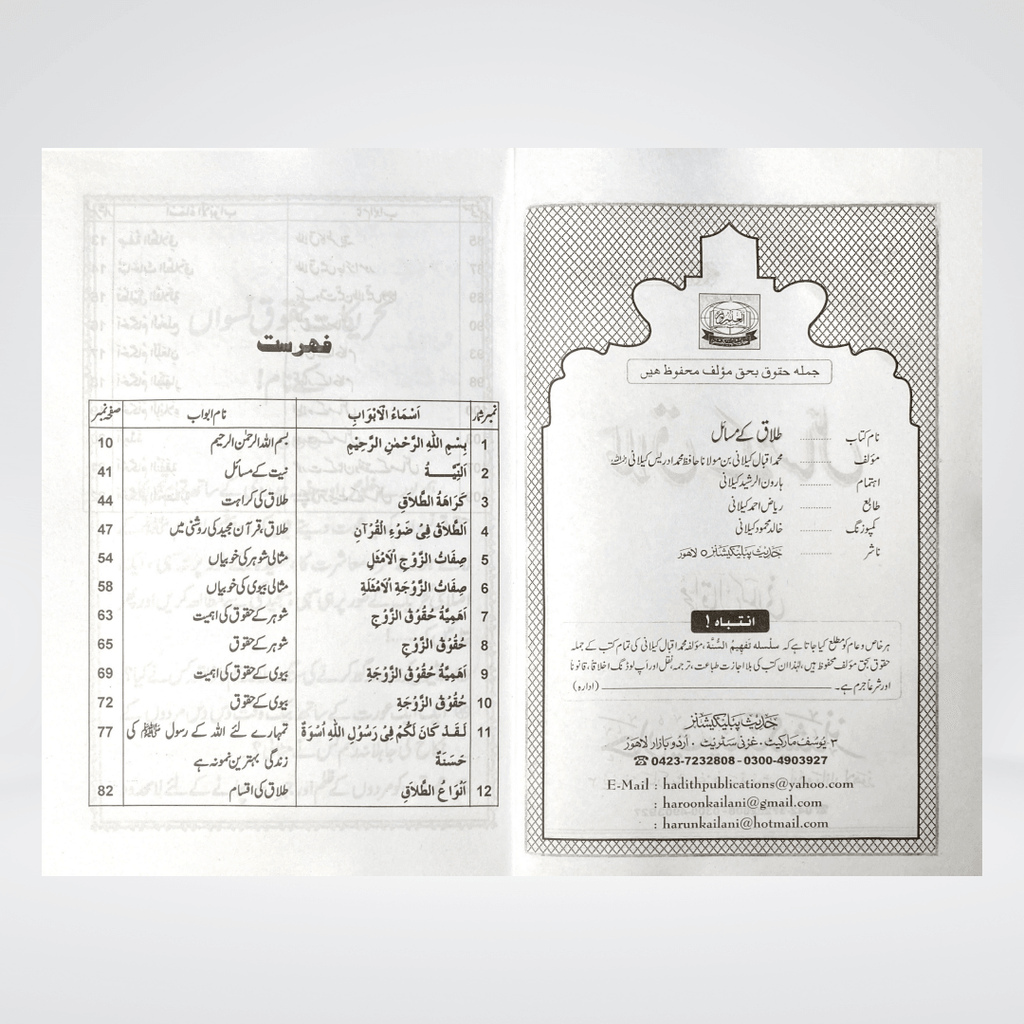 جملہ حقوق بحق مؤلف محفوظ ہیں
نام کتاب ........... طلاق کے مسائل
مؤلف ........... محمد اقبال کیلانی بن مولانا حافظ محمد ادریس کیلانی رحمہ اللہ
اہتمام ........... ہارون الرشید کیلانی
طابع ........... ریاض احمد کیلانی
کمپوزنگ ........... خالد محمود کیلانی
ناشر ........... حدیث پبلیکیشنز ٥ لاہور
انتباہ !
ہر خاص و عام کو مطلع کیا جاتا ہے کہ سلسلہ تفہیم السُّنَّہ، مؤلفہ محمد اقبال کیلانی کی تمام کتب کے جملہ
حقوق بحق مؤلف محفوظ ہیں، لہٰذا ان کتب کی بلا اجازت طباعت، ترجمہ، نقل اور اَپ لوڈنگ اخلاقاً، قانوناً
اور شرعاً جرم ہے۔ (ادارہ)
حدیث پبلیکیشنز
٣- یوسف مارکیٹ ٠ غزنی سٹریٹ ٠ اُردو بازار لاہور
☎ 0423-7232808 - 0300-4903927
E-Mail : hadithpublications@yahoo.com
: haroonkailani@gmail.com
: harunkailani@hotmail.com
فہرست
نمبر شمار اَسْمَاءُ الْاَبْوَابِ نام ابواب صفحہ نمبر
1 بِسْمِ اللّٰهِ الرَّحْمٰنِ الرَّحِيْمِ بسم اللہ الرحمٰن الرحیم 10
2 اَلنِّيَّــةُ نیت کے مسائل 41
3 كَرَاهَةُ الطَّلَاقِ طلاق کی کراہت 44
4 اَلطَّلَاقُ فِىْ ضَوْءِ الْقُرْآنِ طلاق، قرآن مجید کی روشنی میں 47
5 صِفَاتُ الزَّوْجِ الْاَمْثَلِ مثالی شوہر کی خوبیاں 54
6 صِفَاتُ الزَّوْجَةِ الْاَمْثَلَةِ مثالی بیوی کی خوبیاں 58
7 اَهَمِيَّةُ حُقُوْقِ الزَّوْجِ شوہر کے حقوق کی اہمیت 63
8 حُقُوْقُ الزَّوْجِ شوہر کے حقوق 65
9 اَهَمِيَّةُ حُقُوْقِ الزَّوْجَةِ بیوی کے حقوق کی اہمیت 69
10 حُقُوْقُ الزَّوْجَةِ بیوی کے حقوق 72
11 لَقَدْ كَانَ لَكُمْ فِىْ رَسُوْلِ اللّٰهِ اُسْوَةٌ تمہارے لئے اللہ کے رسول ﷺ کی 77
حَسَنَةٌ زندگی بہترین نمونہ ہے
12 اَنْوَاعُ الطَّلَاقِ طلاق کی اقسام 82